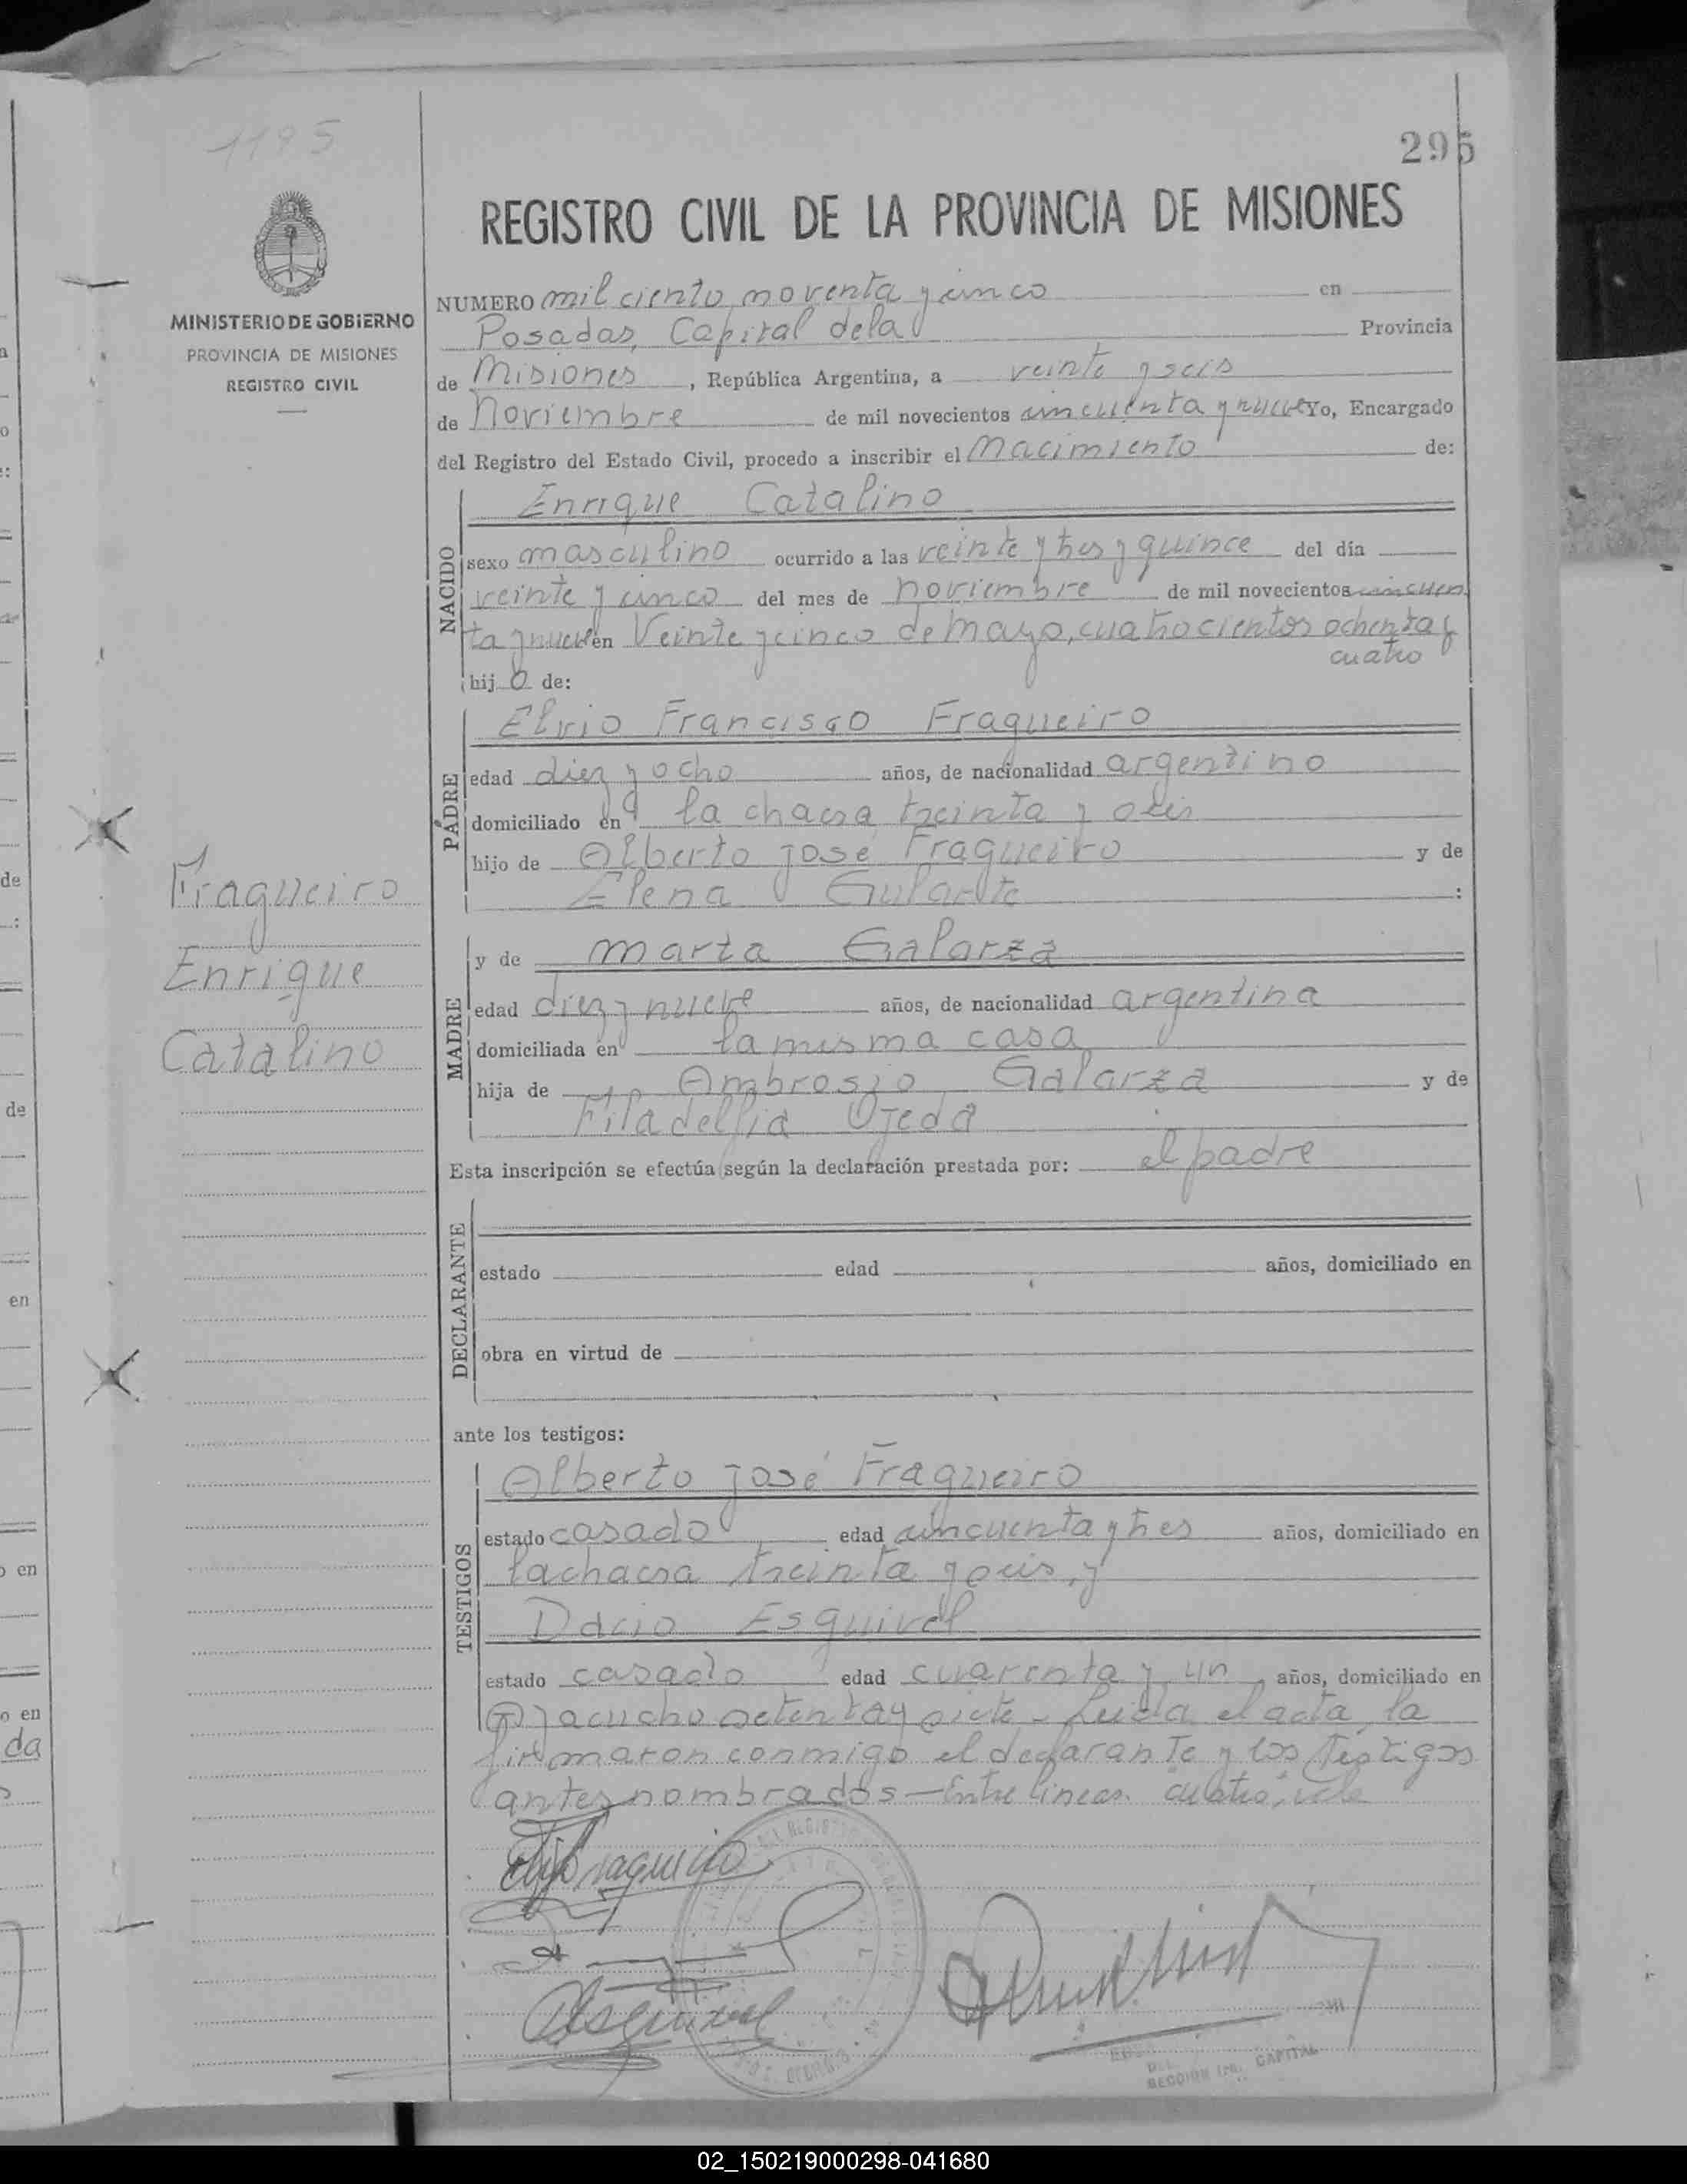 1195
295
REGISTRO CIVIL DE LA PROVINCIA DE MISIONES
MINISTERIO DE GOBIERNO
PROVINCIA DE MISIONES
REGISTRO CIVIL
NUMERO mil ciento noventa y cinco en
Posadas, Capital de la Provincia
de Misiones, República Argentina, a veinte y seis
de Noviembre de mil novecientos cincuenta y nueve Yo, Encargado
del Registro del Estado Civil, procedo a inscribir el Nacimiento de:
NACIDO
Enrique Catalino
sexo masculino ocurrido a las veinte y tres y quince del día
veinte y cinco del mes de noviembre de mil novecientos cincuen
ta y nueve en Veinte y cinco de Mayo, cuatrocientos ochenta y
cuatro
hijo de:
PADRE
Elvio Francisco Fragueiro
edad diez y ocho años, de nacionalidad argentino
domiciliado en la chacra treinta y seis
hijo de Alberto José Fragueiro y de
Elena Gularte :
Fragueiro
Enrique
Catalino
MADRE
y de Marta Galarza
edad diez y nueve años, de nacionalidad argentina
domiciliada en la misma casa
hija de Ambrosio Galarza y de
Filadelfia Ojeda
Esta inscripción se efectúa según la declaración prestada por: el padre
DECLARANTE
estado edad años, domiciliado en
obra en virtud de
ante los testigos:
TESTIGOS
Alberto José Fragueiro
estado casado edad cincuenta y tres años, domiciliado en
la chacra treinta y seis, y
Dacio Esquivel
estado casado edad cuarenta y un años, domiciliado en
Ayacucho setenta y siete - Leida el acta, la
firmaron conmigo el declarante y los testigos
antes nombrados - Entre lineas. cuatro, vale
SECCION 1ra. CAPITAL
02_150219000298-041680